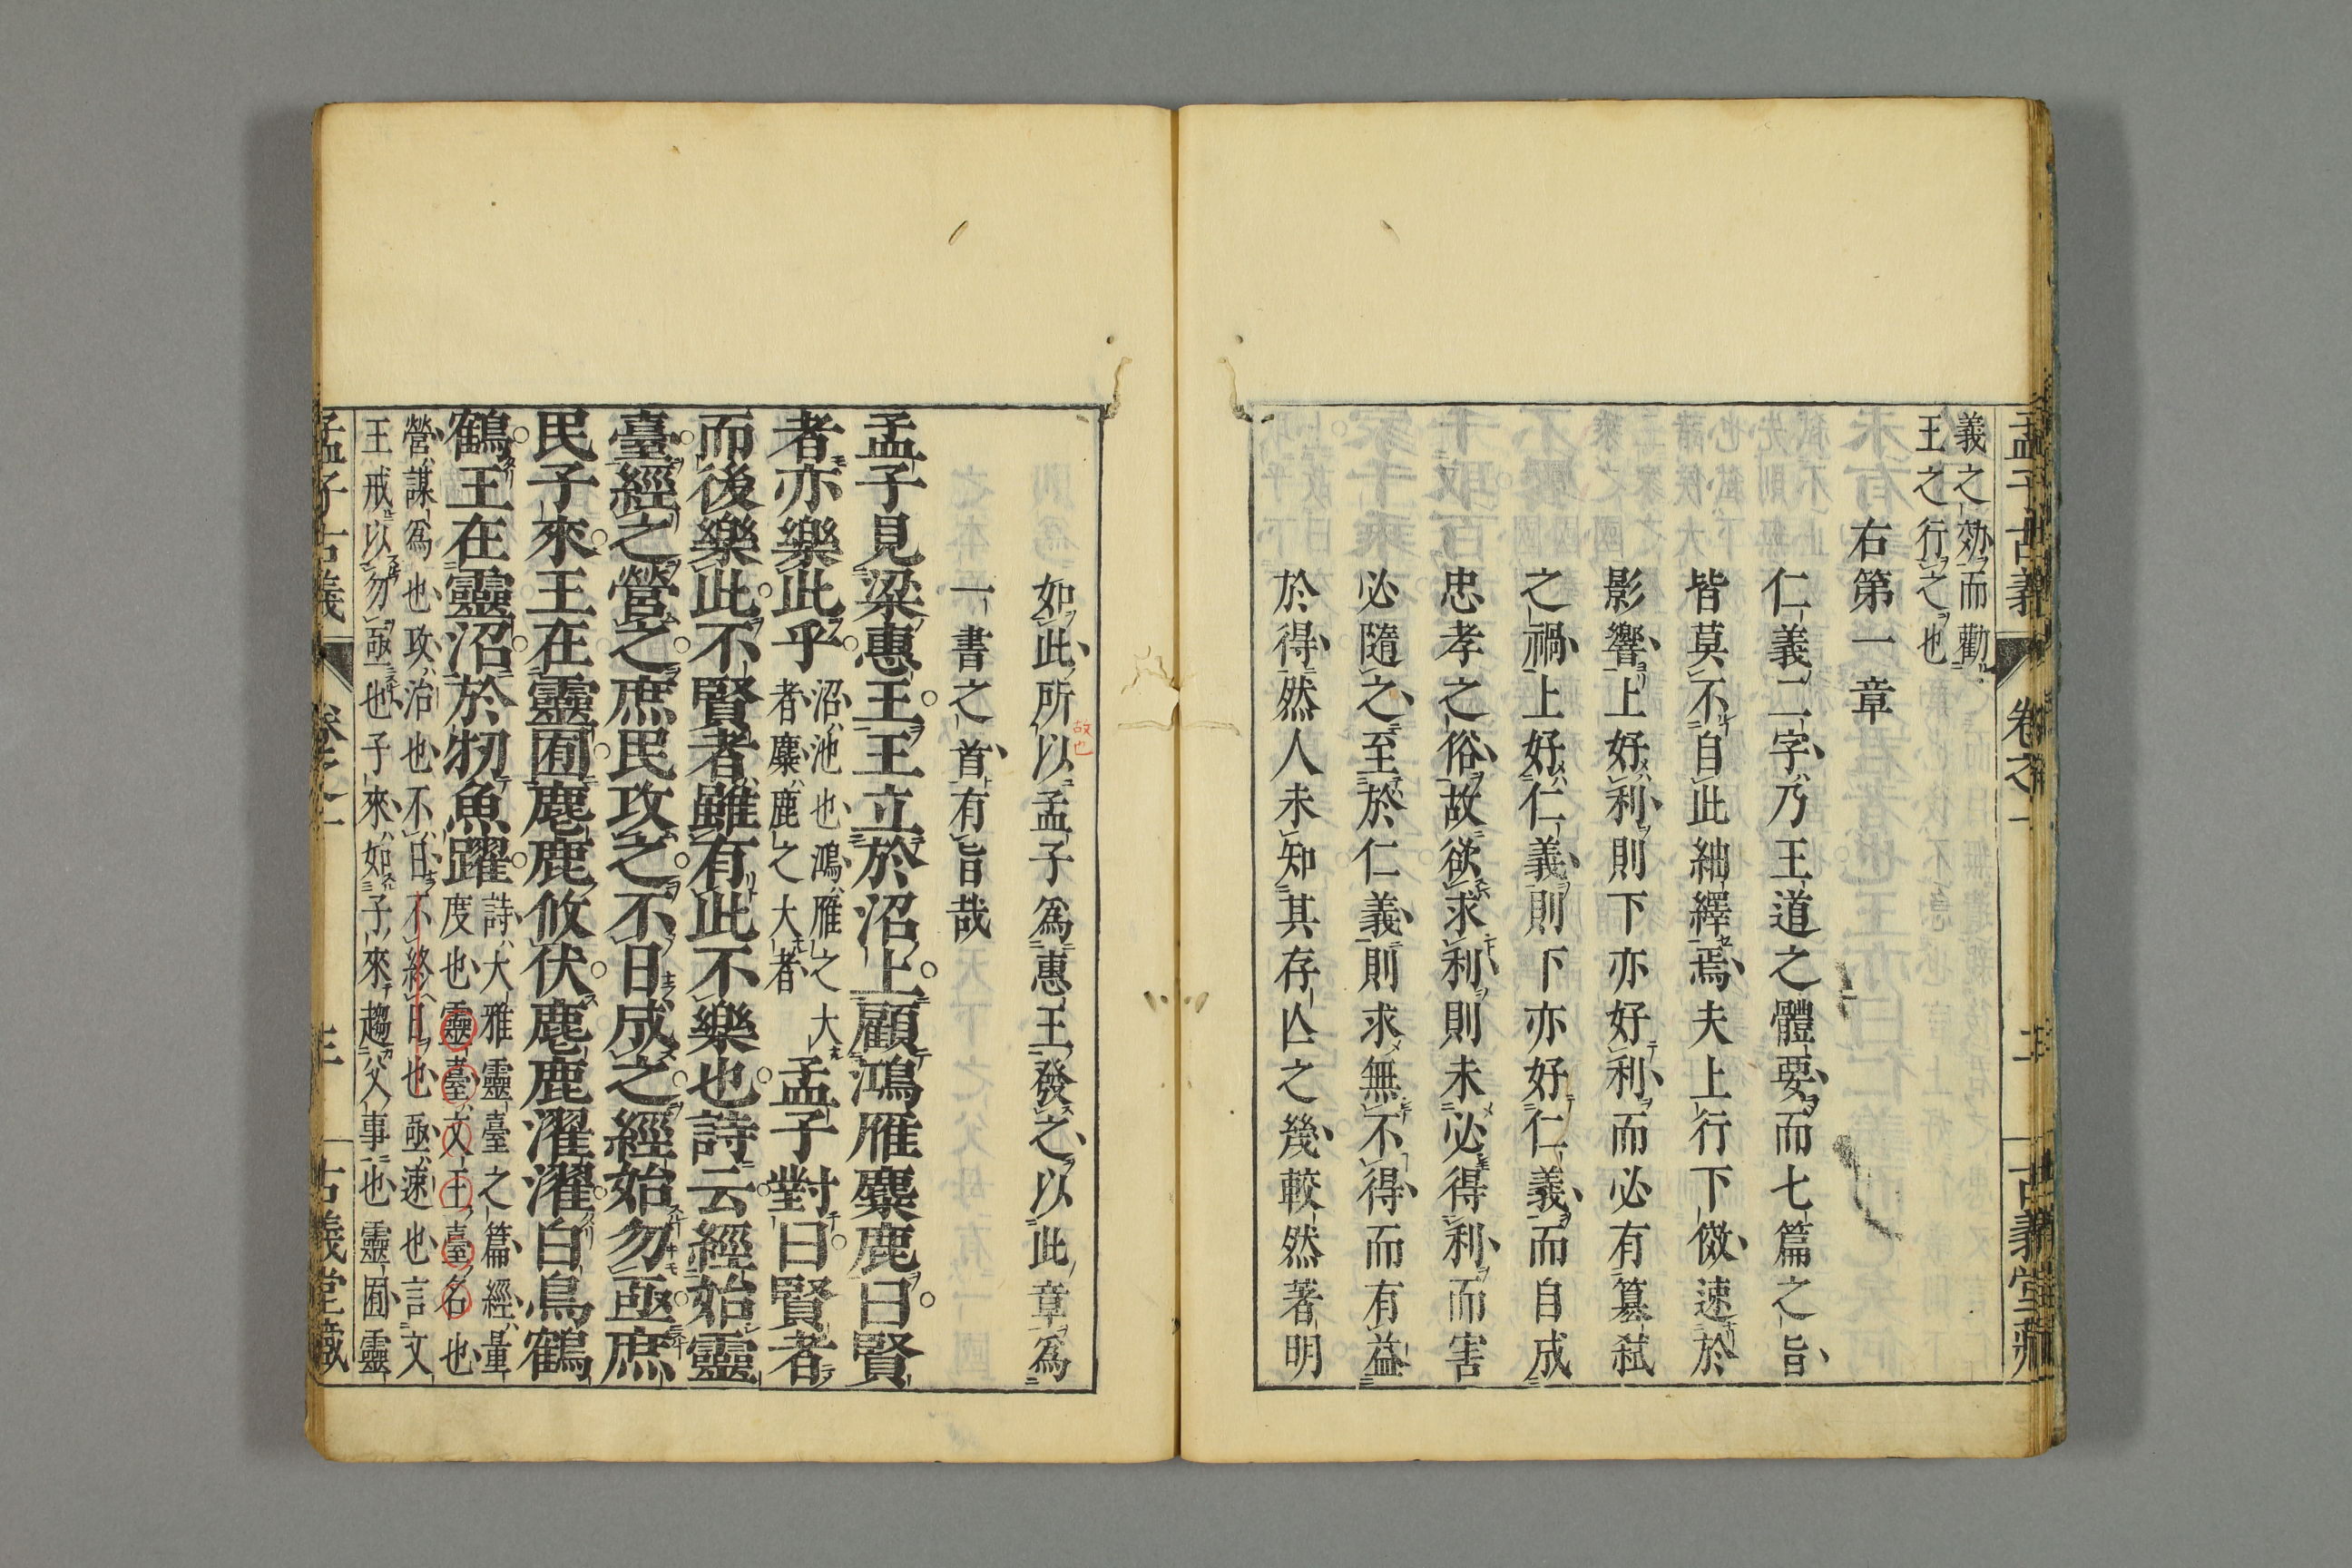 孟子古義 卷之一 二 古義堂藏
義之効而勸
王之行之也
右第一章
仁義二字乃王道之體要而七篇之旨
皆莫不自此紬繹焉夫上行下傚速於
影響上好利則下亦好利而必有篡弑
之禍上好仁義則下亦好仁義而自成
忠孝之俗故欲求利則未必得利而害
必隨之至於仁義則求無不得而有益
於得然人未知其存亾之幾較然著明
如此所以孟子爲惠王發之以此章爲
故也
一書之首有旨哉
孟子見梁惠王王立於沼上顧鴻雁麋鹿曰賢
者亦樂此乎
沼池也鴻雁之大
者麋鹿之大者
孟子對曰賢者
而後樂此不賢者雖有此不樂也詩云經始靈
臺經之營之庶民攻之不日成之經始勿亟庶
民子來王在靈囿麀鹿攸伏麀鹿濯濯白鳥鶴
鶴王在靈沼於牣魚躍
詩大雅靈臺之篇經量
度也靈臺文王臺名也
營謀爲也攻治也不日不終日也亟速也言文
王戒以勿亟也子來如子來趨父事也靈囿靈
孟子古義 卷之一 三 古義堂藏